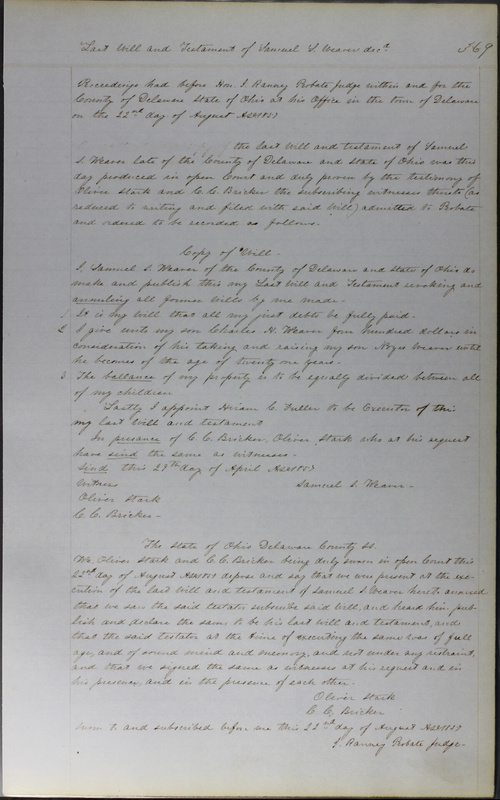 Last Will and Testament of Samuel S. Weaver decd. 569
Proceedings had before Hon. T. Ranney Probate Judge within and for the
County of Delaware State of Ohio at his Office in the town of Delaware
on the 22nd day of August AD 1857
the last will and testament of Samuel
S. Weaver late of the County of Delaware and State of Ohio was this
day produced in open Court and duly proven by the testimony of
Oliver Stark and C. C. Bricker the subscribing witnesses thereto (as
reduced to writing and filed with said Will) admitted to Probate
and ordered to be recorded as follows.
Copy of Will -
I, Samuel S. Weaver of the County of Delaware and State of Ohio do
make and publish this my Last Will and Testament revoking and
annulling all former wills by me made -
1. It is my will that all my just debts be fully paid -
2. I give unto my son Charles H. Weaver four hundred dollars in
consideration of his taking and raising my son Weaver until
he becomes of the age of twenty one years -
3. The ballance of my property is to be equally divided between all
of my children
Lastly I appoint Hiram C. Fuller to be Executor of this
my last will and testament
In presance of C. C. Bricker, Oliver Stark who at his request
have sind the same as witnesses -
Sind this 29th day of April AD 1857
Witness Samuel S. Weaver -
Oliver Stark
C. C. Bricker -
The State of Ohio Delaware County ss.
We, Oliver Stark and C. C. Bricker being duly sworn in open Court this
22nd day of August AD 1857 depose and say that we were present at the exe-
cution of the last will and testament of Samuel S. Weaver hereto annexed
that we saw the said testator subscribe said will, and heard him pub-
lish and declare the same to be his last will and testament, and
that the said testator at the time of executing the same was of full
age, and of sound mind and memory, and not under any restraint,
and that we signed the same as witnesses at his request and in
his presence, and in the presence of each other.
Oliver Stark
C. C. Bricker
Sworn to and subscribed before me this 22nd day of August AD 1857
T. Ranney Probate Judge -